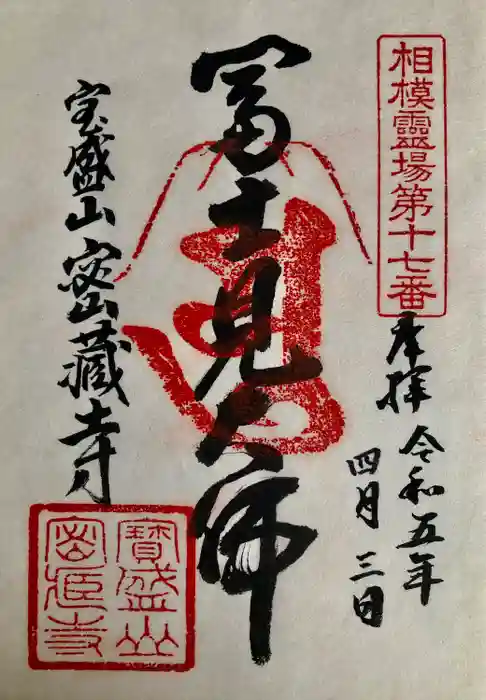 相模靈場第十七番
奉拝
令和五年
四月三日
冨士見大佛
宝盛山密藏寺
寶盛山
密藏寺